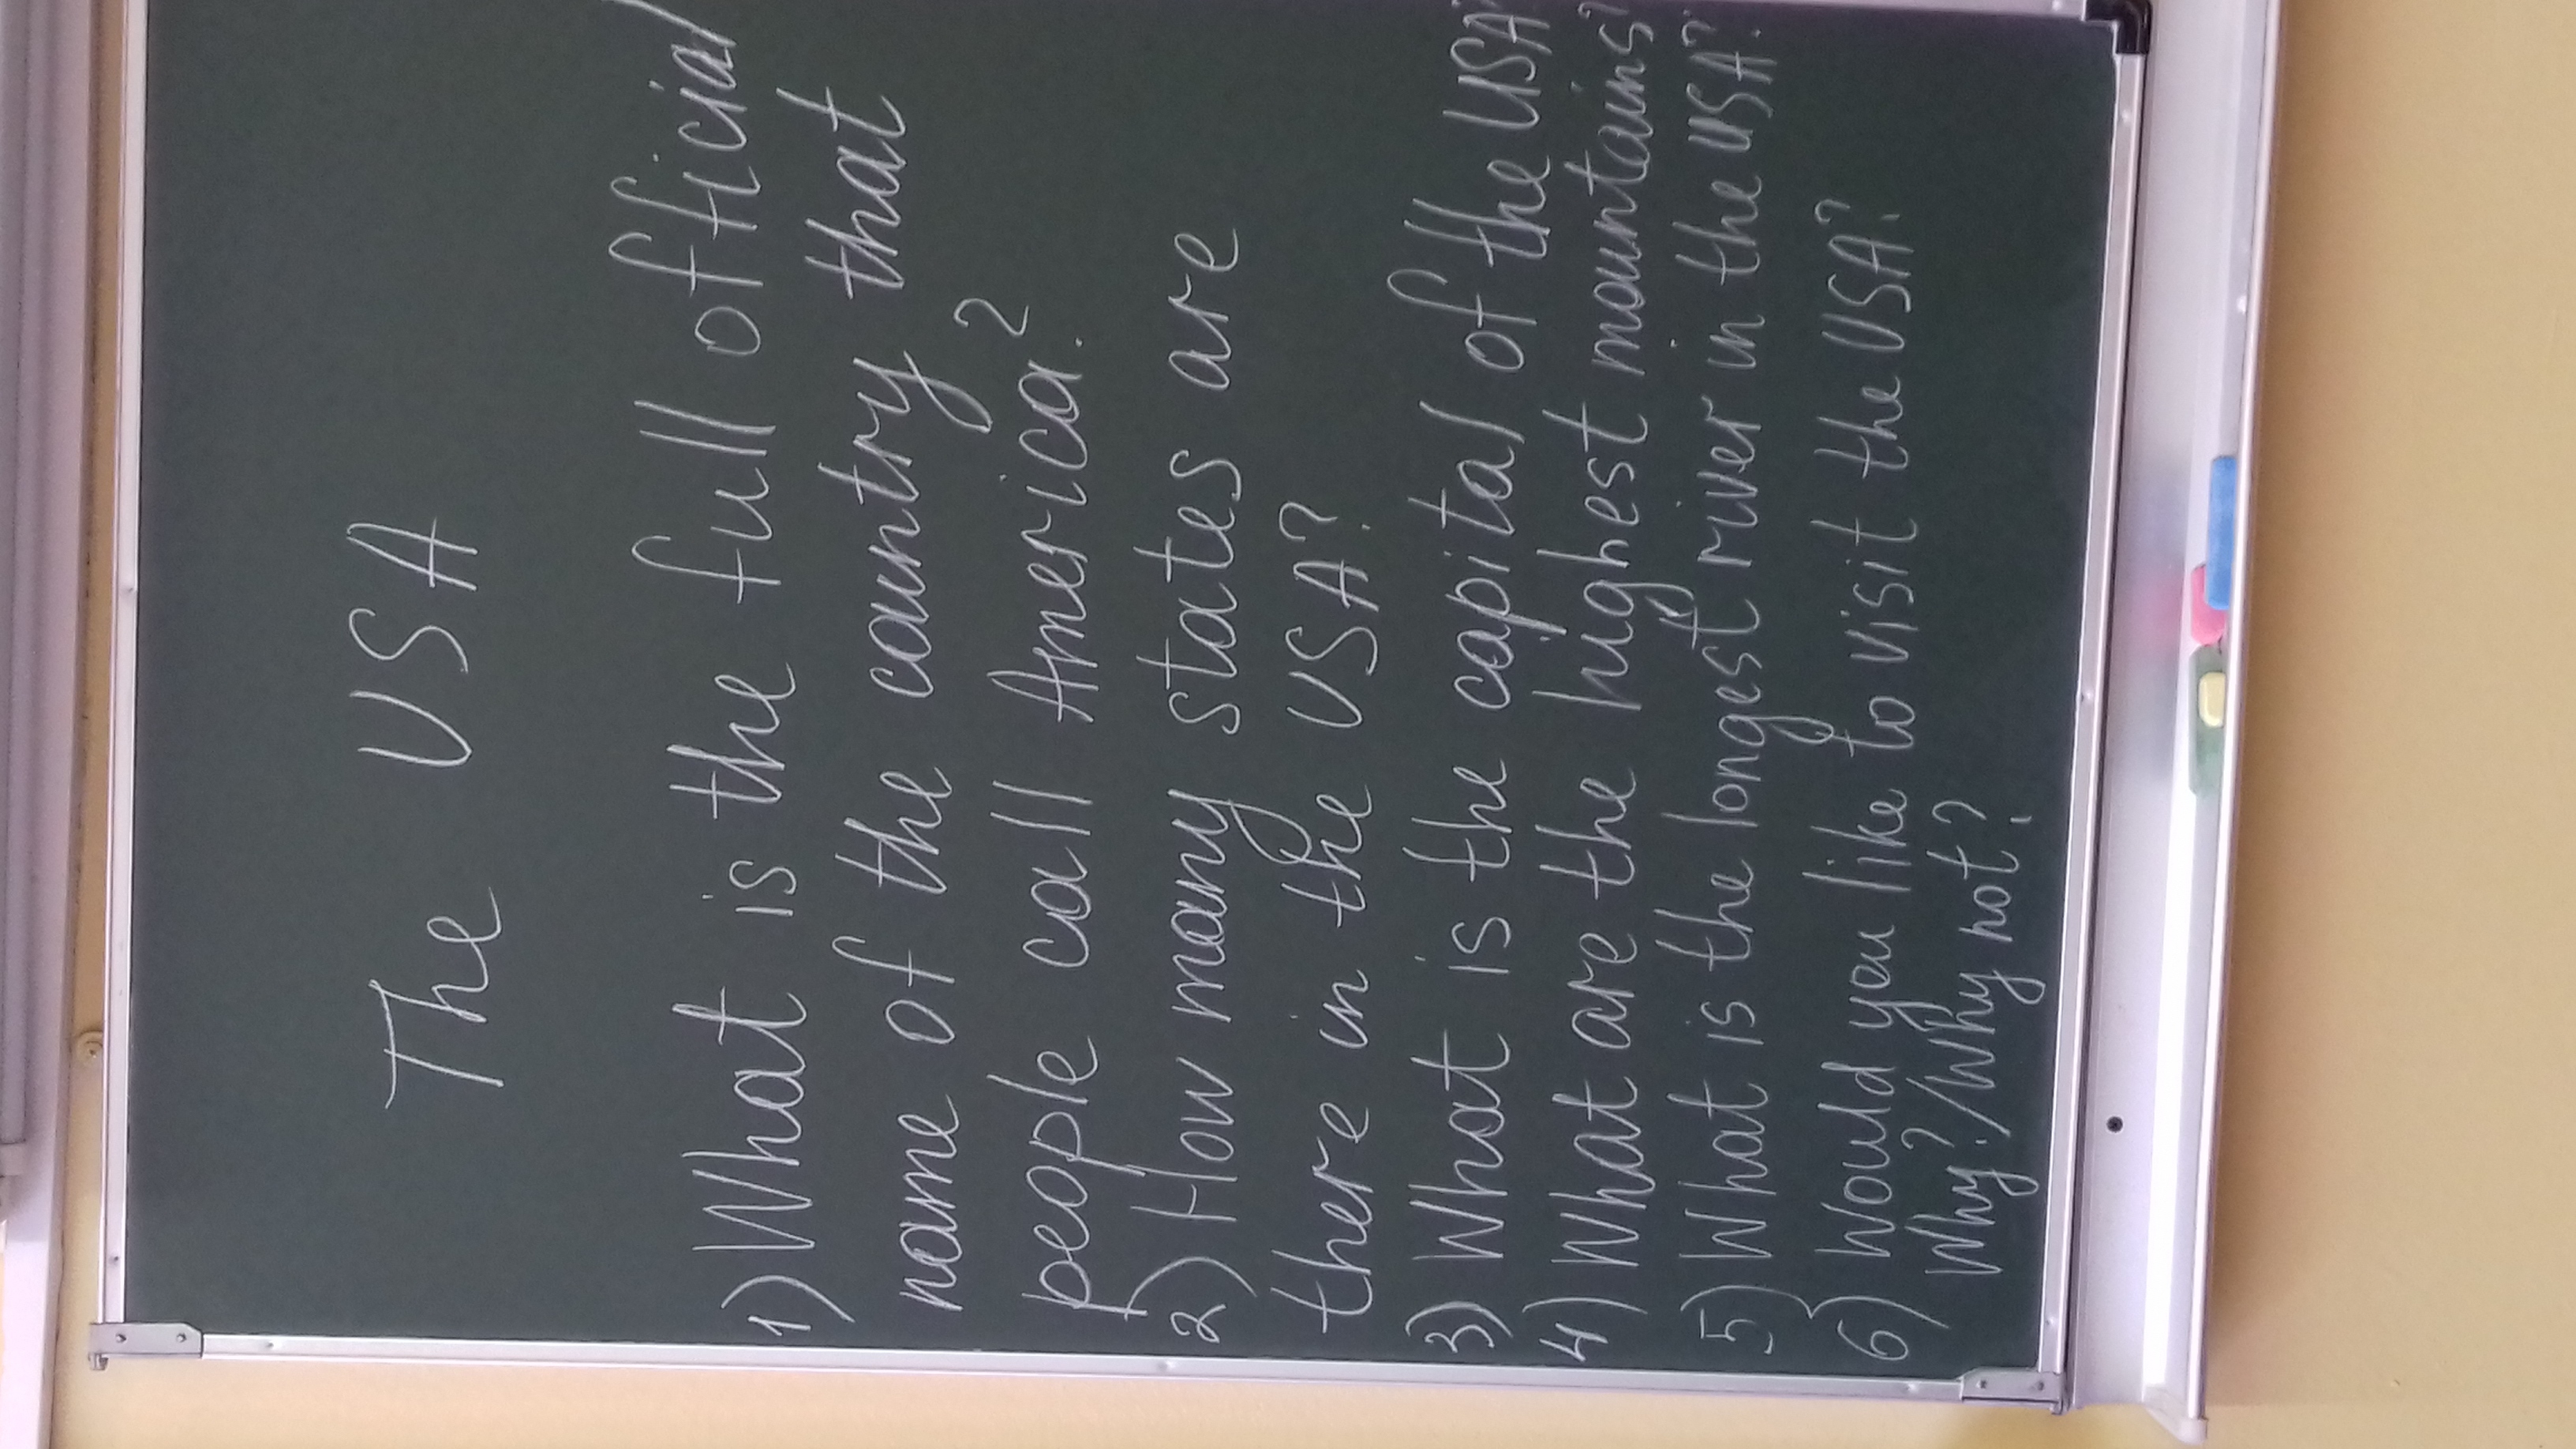 The USA
1) What is the full official
name of the country that
people call America?
2) How many states are
there in the USA?
3) What is the capital of the USA?
4) What are the highest mountains?
5) What is the longest river in the USA?
6) Would you like to visit the USA?
Why?/Why not?